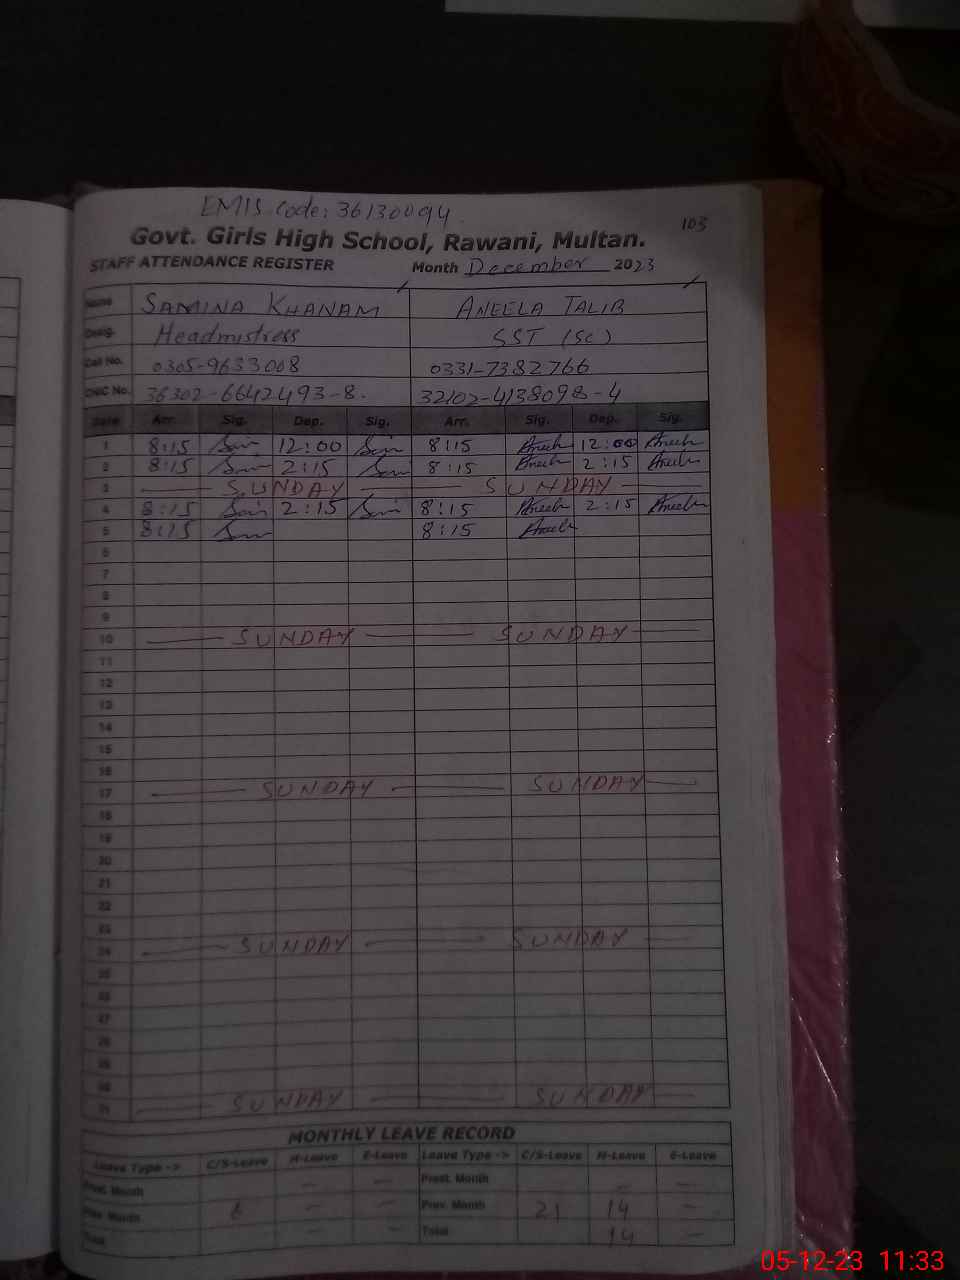 EMIS Code: 36130094
103
Govt. Girls High School, Rawani, Multan.
STAFF ATTENDANCE REGISTER Month December 2023
Name SAMINA KHANAM ANEELA TALIB
Desig. Headmistress SST (Sc)
Cell No. 0305-9633008 0331-7382766
CNIC No. 36302-6642493-8. 32102-4138098-4
Date Arr. Sig. Dep. Sig. Arr. Sig. Dep. Sig.
1 8:15 12:00 8:15 Aneela 12:00 Aneela
2 8:15 2:15 8:15 Aneela 2:15 Aneela
3 SUNDAY SUNDAY
4 8:15 2:15 8:15 Aneela 2:15 Aneela
5 8:15 8:15 Aneela
6
7
8
9
10 SUNDAY SUNDAY
11
12
13
14
15
16
17 SUNDAY SUNDAY
18
19
20
21
22
23
24 SUNDAY SUNDAY
25
26
27
28
29
30
31 SUNDAY SUNDAY
MONTHLY LEAVE RECORD
Leave Type -> C/S-Leave M-Leave E-Leave Leave Type -> C/S-Leave M-Leave E-Leave
Prest. Month — — Prest. Month — —
Prev. Month — — Prev. Month 21 14 —
Total — — Total 14 —
05-12-23 11:33